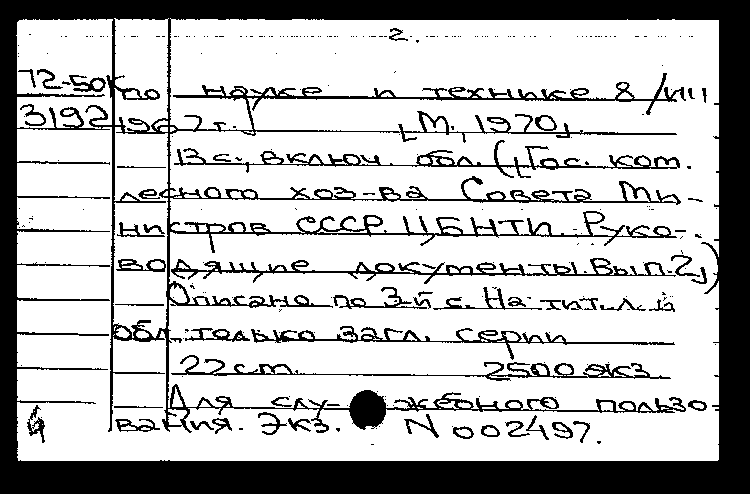 2.
72-50к по науке и технике 8/VIII
3192 1967г.] [М., 1970].
13 с., включ. обл. ([Гос. ком.
лесного хоз-ва Совета Ми-
нистров СССР. ЦБНТИ. Руко-
водящие документы. Вып. 2])
Описано по 3-й с. На тит. л. и
обл. только загл. серии
22 cm. 2500 экз.
Для служебного пользо-
вания. Экз. N 002497.